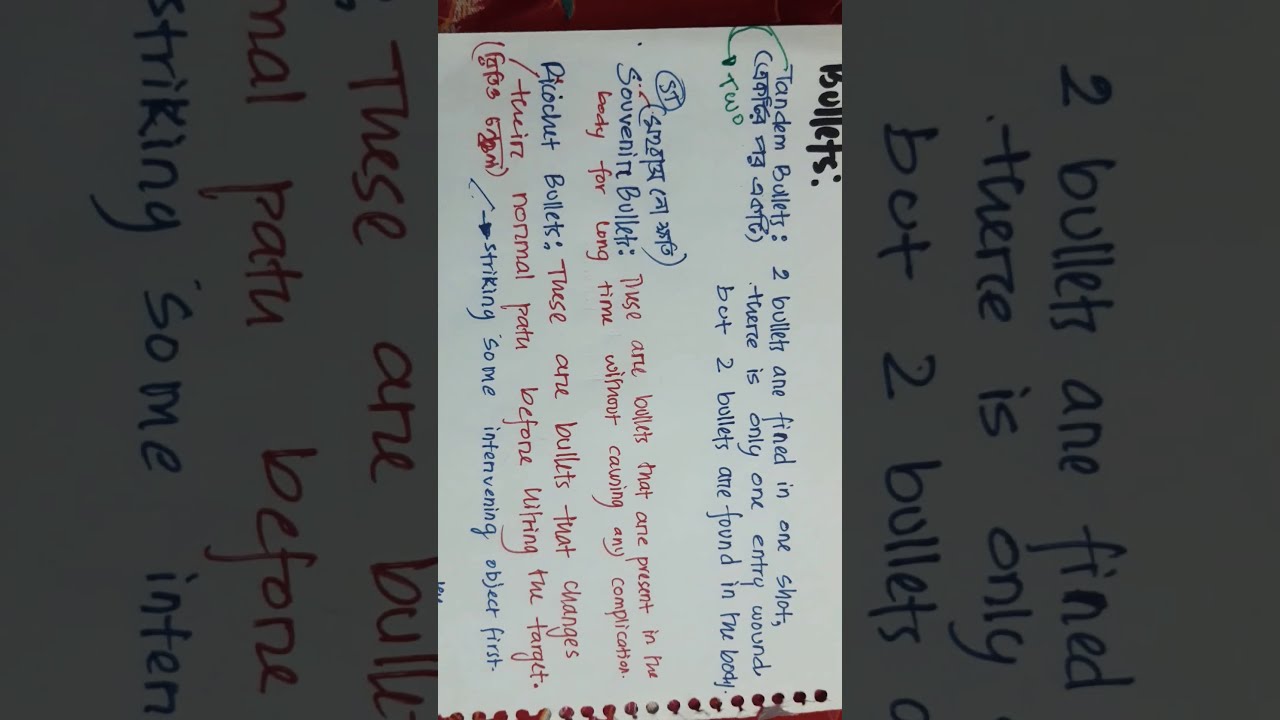 Bullets:
Tandem Bullets: 2 bullets are fired in one shot,
(একটির পর একটি) there is only one entry wound
Two but 2 bullets are found in the body.
ST
Souvenir Bullets: These are bullets that are present in the
body for long time without causing any complication.
Ricochet Bullets: These are bullets that changes
their normal path before hitting the target.
→ striking some intervening object first.